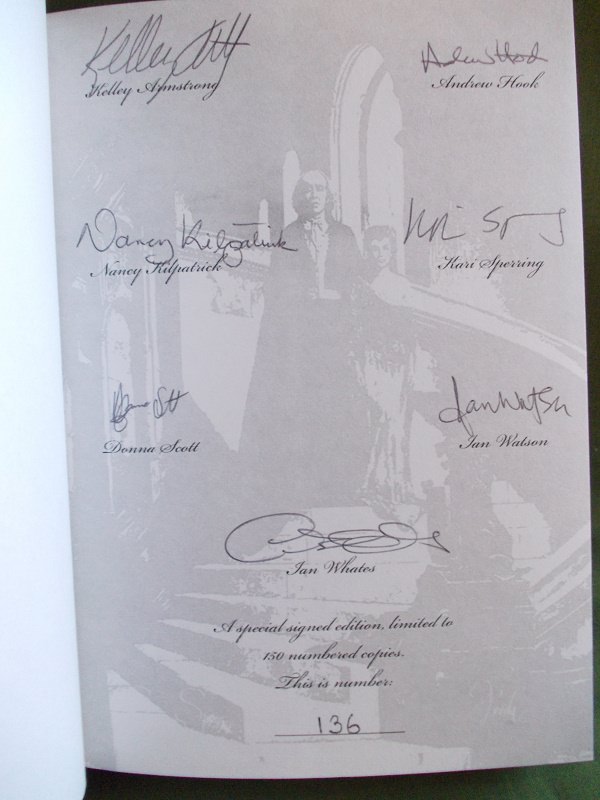 Kelley Armstrong
Andrew Hook
Andrew Hook
Nancy Kilpatrick
Nancy Kilpatrick
Kari Sperring
Donna Scott
Ian Watson
Ian Watson
Ian Whates
A special signed edition, limited to
150 numbered copies.
This is number:
136